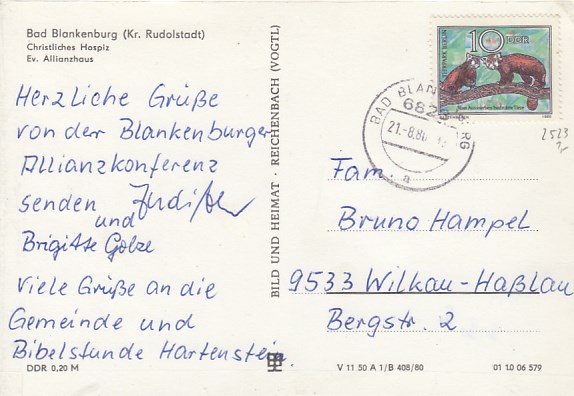 Bad Blankenburg (Kr. Rudolstadt)
Christliches Hospiz
Ev. Allianzhaus
Herzliche Grüße
von der Blankenburger
Allianzkonferenz
senden
und
Brigitte Golze
Viele Grüße an die
Gemeinde und
Bibelstunde Hartenstein.
DDR 0,20 M
BILD UND HEIMAT · REICHENBACH (VOGTL)
V 11 50 A 1/B 408/80
01 10 06 579
10 DDR
TIERPARK BERLIN
BAD BLANKENBURG
682
21.-8.80
a
2523
Fam.
Bruno Hampel
9533 Wilkau-Haßlau
Bergstr. 2